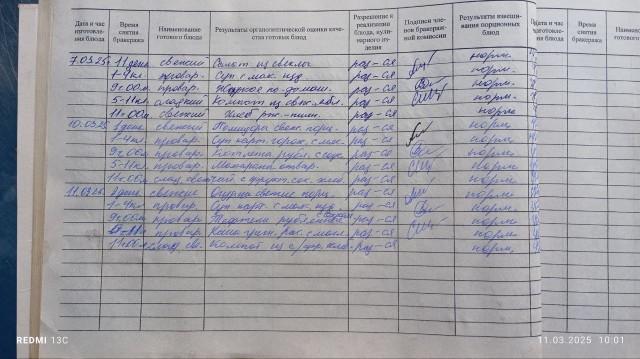 Дата и час изготовления блюда
Время снятия бракеража
Наименование готового блюда
Результаты органолептической оценки качества готовых блюд
Разрешение к реализации блюда, кулинарного изделия
Подписи членов бракеражной комиссии
Результаты взвешивания порционных блюд
Дата и час изготовления блюда
Время снятия бракеража
Наименование готового блюда
7.03.25 свежий Салат из свеклы раз-ся норм.
1-4кл. провар. Суп с мак. изд раз-ся норм.
9ч00м. провар. Жаркое по-домаш. раз-ся норм.
5-11кл сладкий Компот из свеж. ябл. раз-ся норм.
11ч00м. свежий Хлеб рж.-пшен. раз-ся норм
10.03.25 свежий Помидоры свеж. порц. раз-ся норм.
1-4кл. провар. Суп карт. горох. с мяс. раз-ся норм.
9ч00м провар. Котлета рубл. с соус. раз-ся норм.
5-11кл провар. Макароны отвар. раз-ся норм.
11ч00м раз-ся норм.
11.03.25 свежие Огурцы свежие порц. раз-ся норм.
1-4кл провар. Суп карт. с мак. изд раз-ся норм.
9ч00м провар. раз-ся норм.
провар. Каша раз-ся норм.
11ч00м Компот из с/фр. раз-ся норм.
REDMI 13C
11.03.2025 10:01